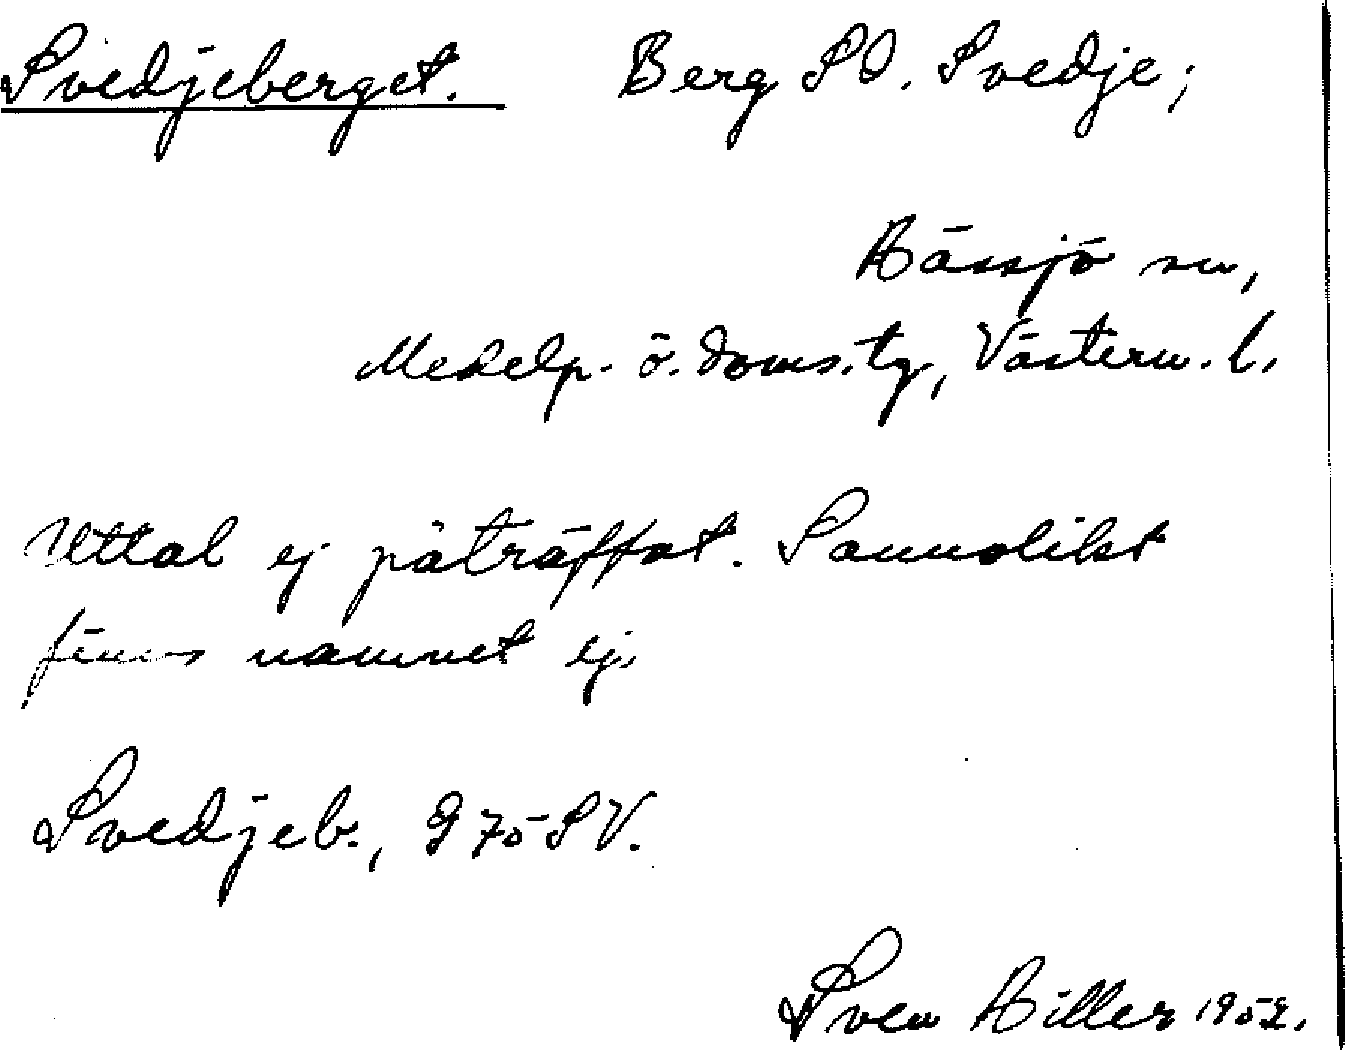 Svedjeberget. Berg SO. Svedje;
Hässjö sn,
Medelp. ö. doms.tg, Västern. l.
Uttal ej påträffat. Sannolikt
finns namnet ej.
Svedjeb., G 75 SV.
Sven Hiller 1952.